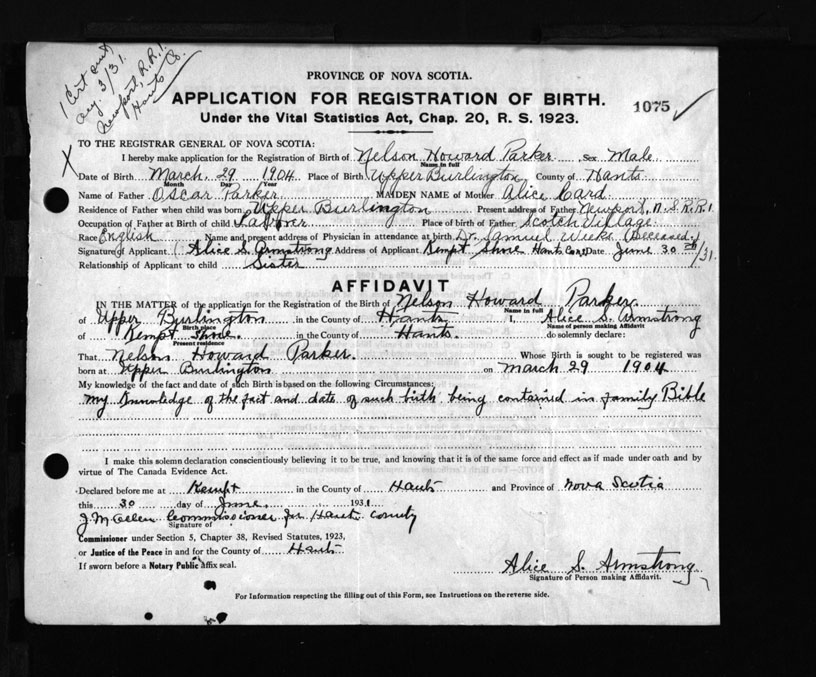 1 Cert sent
Aug 3/31.
Newport, R.R.1.
Hants Co.
PROVINCE OF NOVA SCOTIA.
APPLICATION FOR REGISTRATION OF BIRTH.
1075
Under the Vital Statistics Act, Chap. 20, R. S. 1923.
TO THE REGISTRAR GENERAL OF NOVA SCOTIA:
I hereby make application for the Registration of Birth of Nelson Howard Parker Sex Male
Name in full
Date of Birth March 29 1904 Place of Birth Upper Burlington County of Hants
Month Day Year
Name of Father Oscar Parker MAIDEN NAME of Mother Alice Card
Residence of Father when child was born Upper Burlington Present address of Father Newport, N.S. R.R.1.
Occupation of Father at Birth of child Laborer Place of birth of Father Scotch Village
Race English Name and present address of Physician in attendance at birth Dr. Samuel Weeks (Deceased)
Signature of Applicant Alice S. Armstrong Address of Applicant Kempt Shore Hants Co. Date June 30th/31.
Relationship of Applicant to child Sister
AFFIDAVIT
IN THE MATTER of the application for the Registration of the Birth of Nelson Howard Parker
Name in full
of Upper Burlington in the County of Hants I, Alice S. Armstrong
Birth place Name of person making Affidavit
of Kempt Shore. in the County of Hants. do solemnly declare:
Present residence
That Nelson Howard Parker. Whose Birth is sought to be registered was
born at Upper Burlington on March 29 1904
My knowledge of the fact and date of such Birth is based on the following Circumstances:
My knowledge of the fact and date of such birth being contained in family Bible
I make this solemn declaration conscientiously believing it to be true, and knowing that it is of the same force and effect as if made under oath and by
virtue of The Canada Evidence Act.
Declared before me at Kempt in the County of Hants and Province of Nova Scotia
this 30 day of June 1931
J. M. Allen Commissioner for Hants County
Signature of
Commissioner under Section 5, Chapter 38, Revised Statutes, 1923,
or Justice of the Peace in and for the County of Hants
If sworn before a Notary Public affix seal.
Alice S. Armstrong
Signature of Person making Affidavit.
For Information respecting the filling out of this Form, see Instructions on the reverse side.